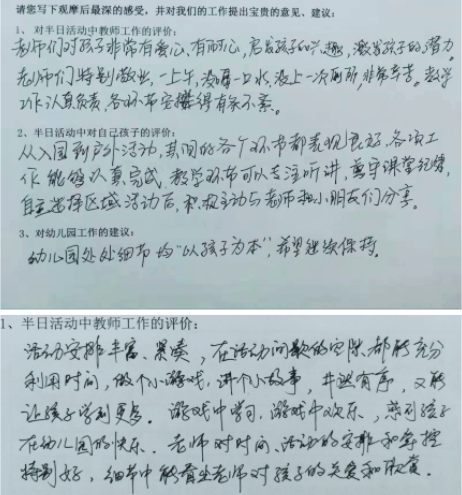 请您写下观摩后最深的感受，并对我们的工作提出宝贵的意见、建议：
1、对半日活动中教师工作的评价：
老师们对孩子非常有爱心、有耐心，启发孩子的兴趣，激发孩子的潜力。
老师们特别敬业，一上午，没喝一口水，没上一次厕所，非常辛苦。教学
工作认真负责，各环节安排得有条不紊。
2、半日活动中对自己孩子的评价：
从入园到户外活动，其间的各个环节都表现良好，各项工
作能够认真完成，教学环节可以专注听讲，遵守课堂纪律，
自主选择区域活动后，积极主动与老师和小朋友们分享。
3、对幼儿园工作的建议：
幼儿园处处细节均“以孩子为本”，希望继续保持。
1、半日活动中教师工作的评价：
活动安排丰富、紧凑，在活动间歇的空隙都能充分
利用时间，做个小游戏，讲个小故事，井然有序，又能
让孩子学到更多。游戏中学习，游戏中欢乐，感到孩子
在幼儿园的快乐。老师对时间、活动的安排和掌控
特别好，细节中能看出老师对孩子的关爱和用意。